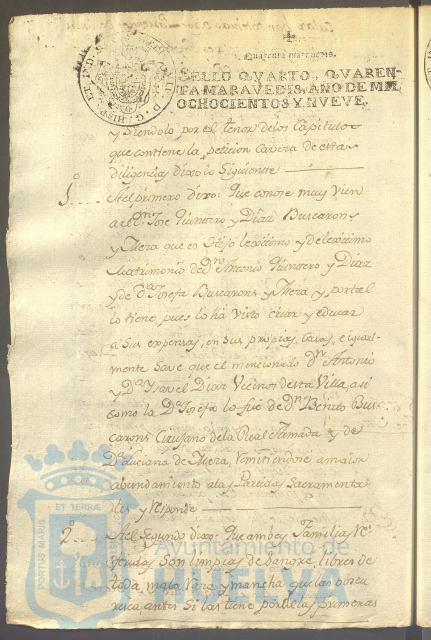 Quarenta maravedis.
SELLO QVARTO, QVAREN-
TA MARAVEDIS, AÑO DE MIL
OCHOCIENTOS Y NVEVE.
y Siendolo por el tenor delos Capitulos
que contiene la peticion Cavera de estas
diligencias dixo lo Siguiente
1º
Al primero dixo: Que conose muy vien
a el Dn Jose Quintero y Diaz Buscarons
y Mera que es Hijo lexitimo y delexitimo
Matrimonio de Dn Antonio Quintero y Diaz
y de Da Josefa Buscarons y Mera, y por tal
lo tiene, pues lo ha visto criar y educar
a Sus expensas, en sus propias Casas, e igual-
mente Save que el mencionado Dn Antonio
y Da Ysavel Diaz Vecinos desta Villa, asi
Como la Da Josefa lo fue de Dn Benito Bus-
carons Cirujano dela Real Armada y de
Da Luciana de Mera, remitiendose a maior
abundamiento ala Partidas Sacramenta-
les y responde
2º
Al Segundo dixo: Que ambas Familias
Son limpias de Sangre, libres de
toda mala raza y mancha que las obscu-
resca, antes Si las tiene por delas primeras
PORTUS MARIS
ET TERRÆ
Ayuntamiento de
HUELVA